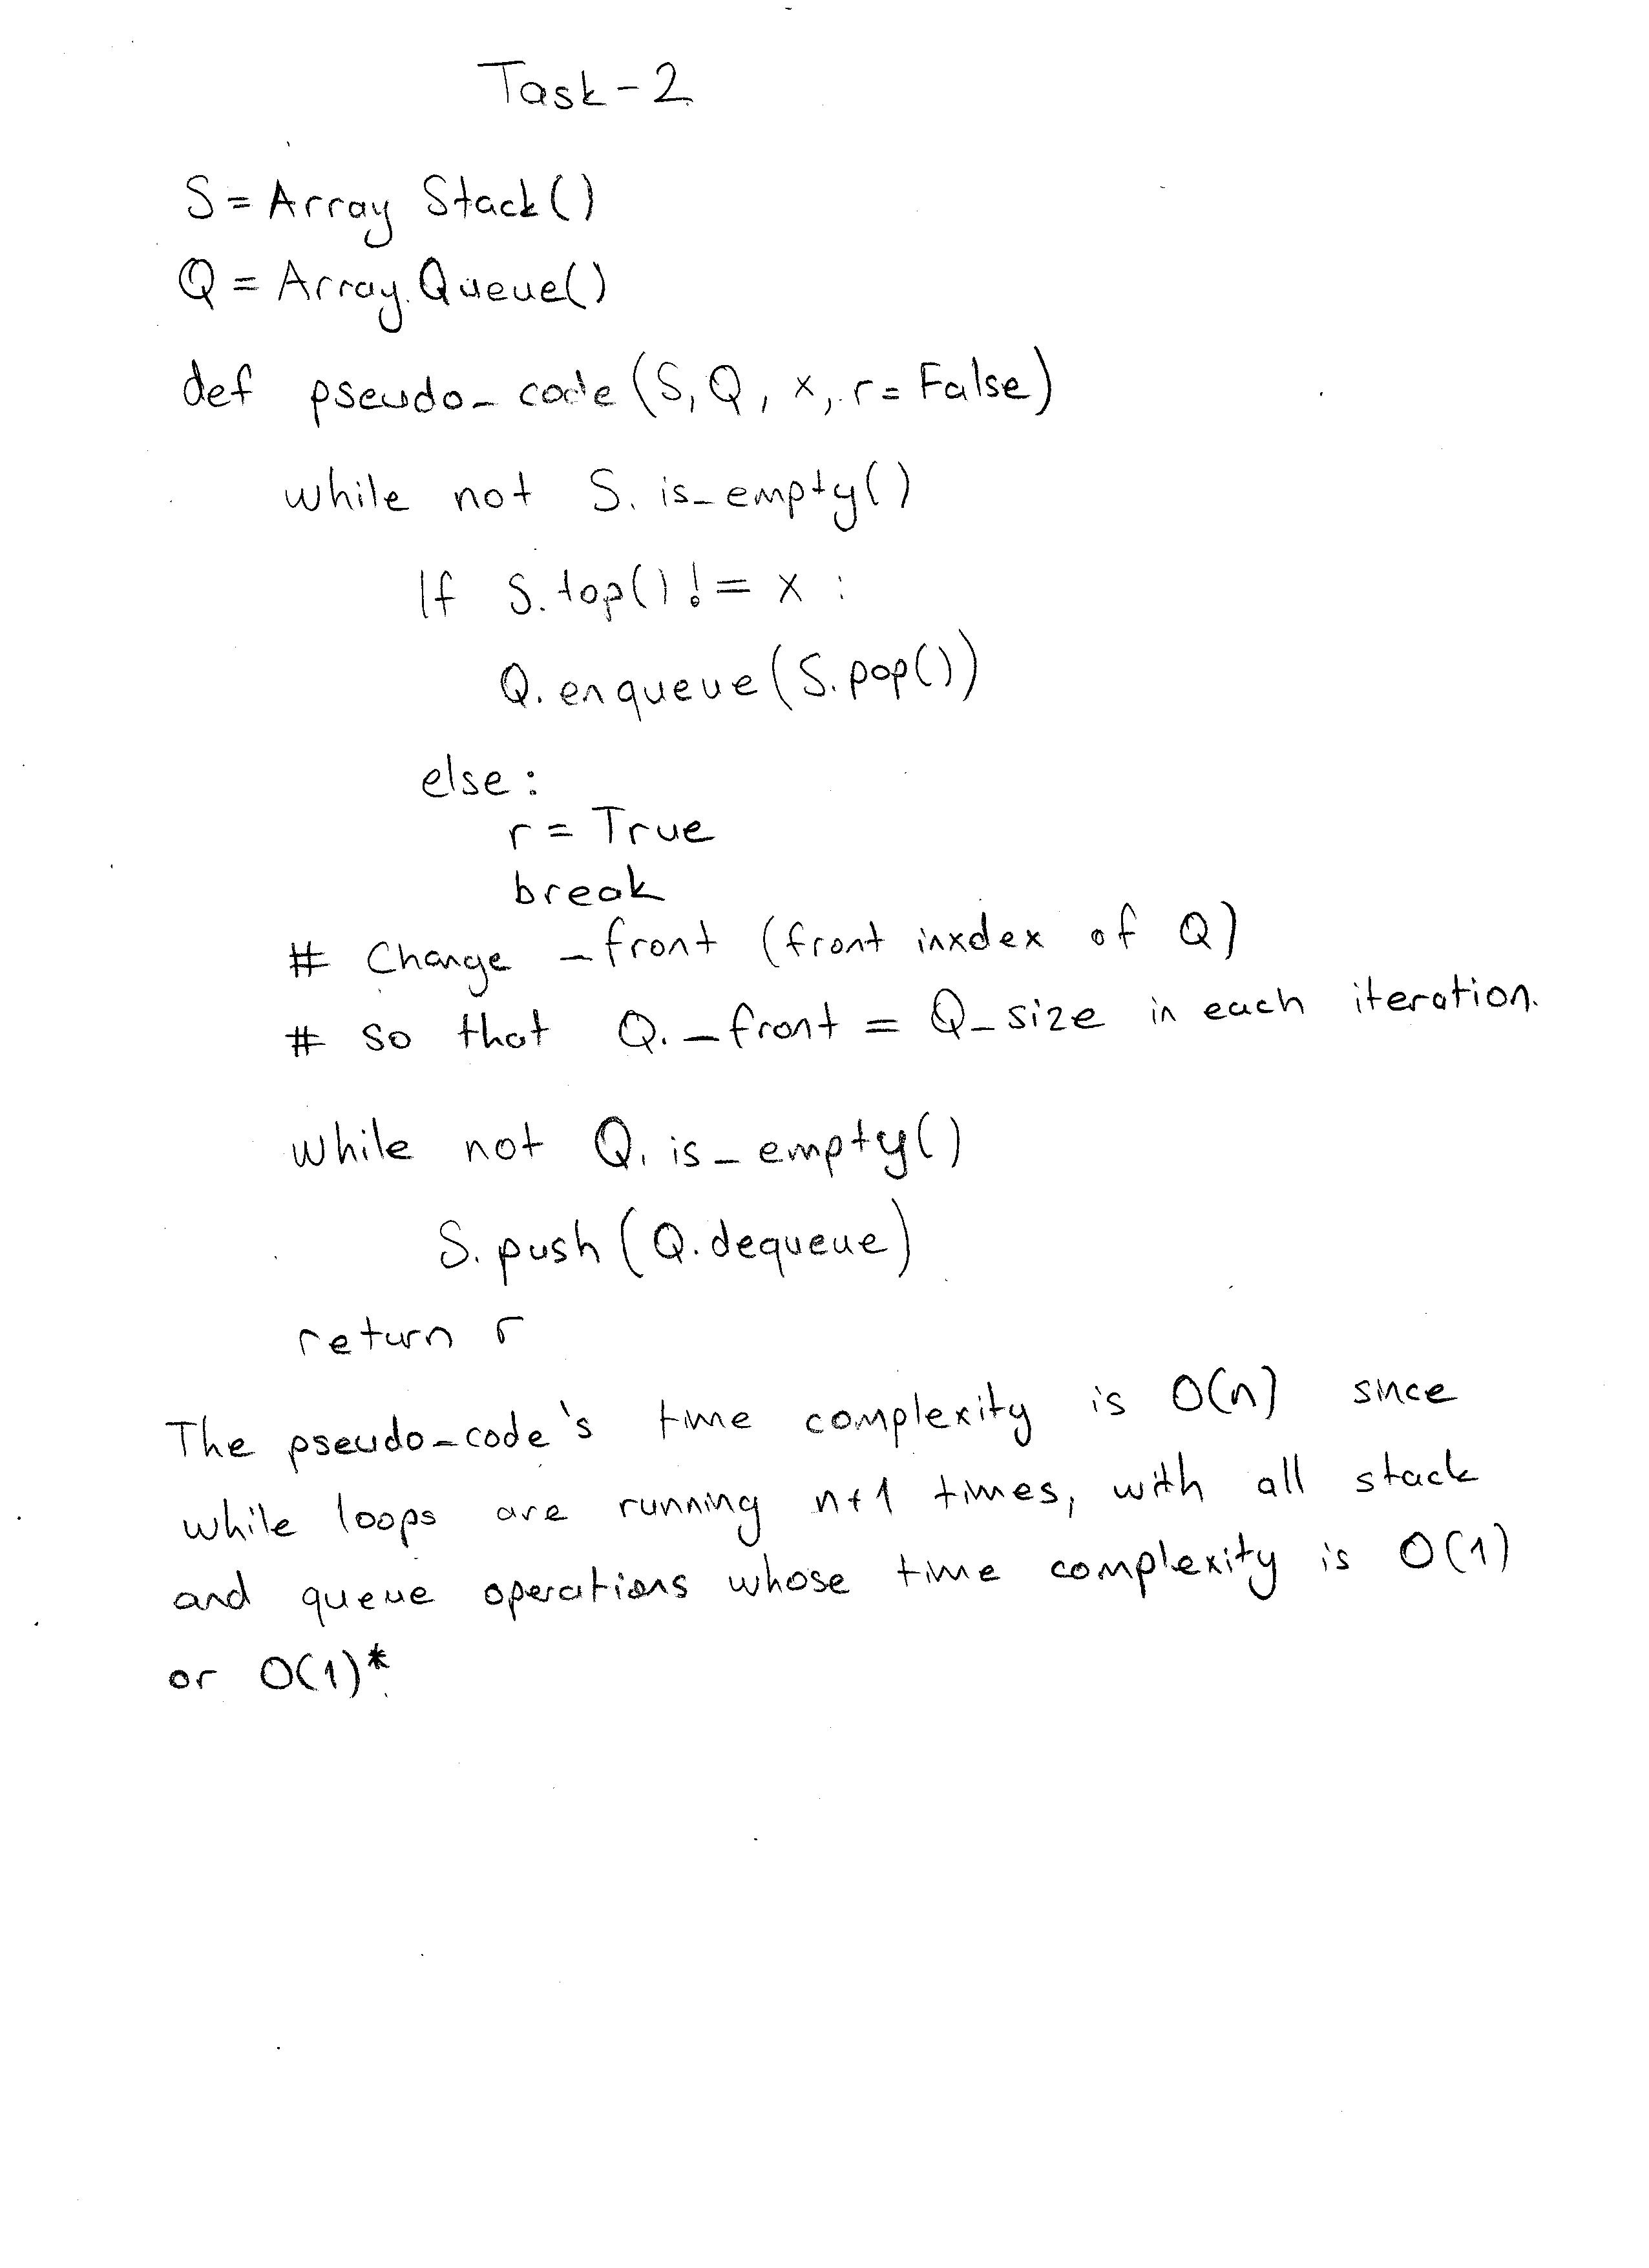 Task-2
S = Array Stack()
Q = Array.Queue()
def pseudo_code(S, Q, x, r = False)
while not S. is_empty()
If S. top() != x :
Q. enqueue(S.pop())
else :
r = True
break
# Change _front (front inxdex of Q)
# so that Q._front = Q_size in each iteration.
while not Q. is_empty()
S. push(Q.dequeue)
return r
The pseudo_code's time complexity is O(n) since
while loops are running n+1 times, with all stack
and queue operations whose time complexity is O(1)
or O(1)*